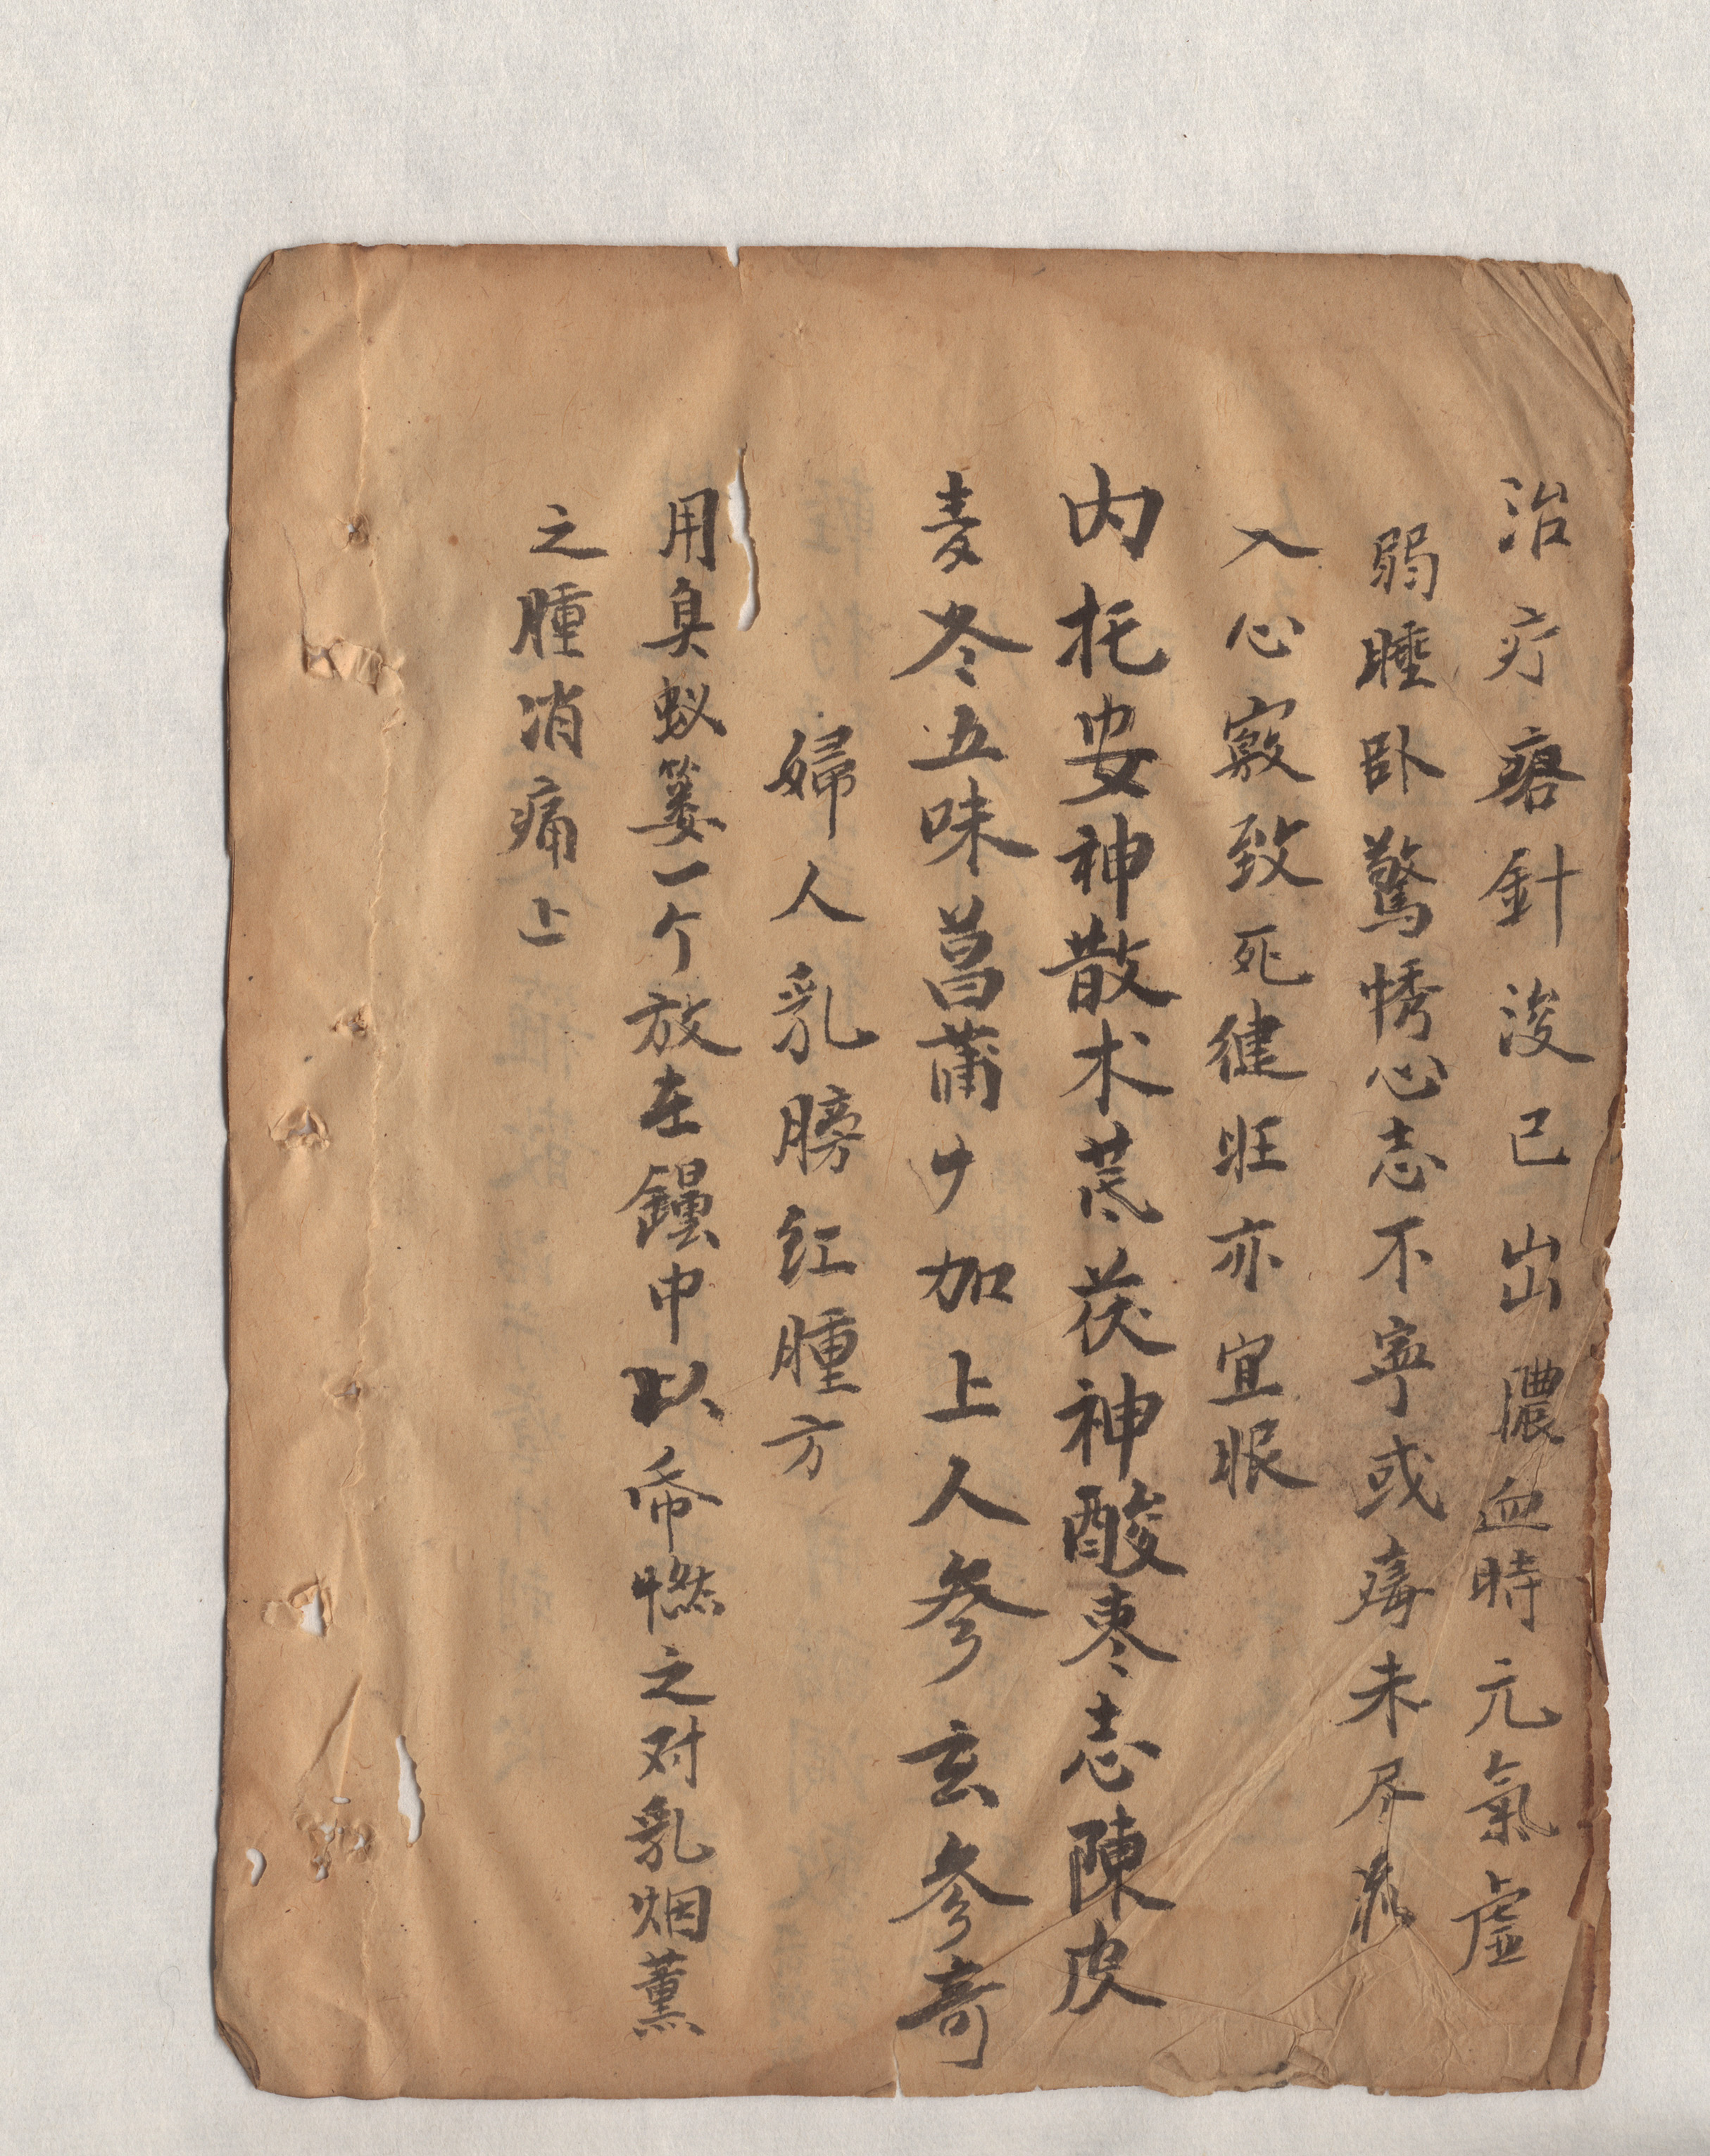 治疔瘡針浚已出膿血時元氣虛
弱睡卧驚悸心志不寧或毒未尽流
入心竅致死健旺亦宜眼
内托安神散术芪茯神酸枣志陳皮
麦冬五味菖蒲艹加上人參玄参奇
婦人乳膀红腫方
用臭蚁篓一个放在鑵中以希燃之对乳烟薰
之腫消痛上